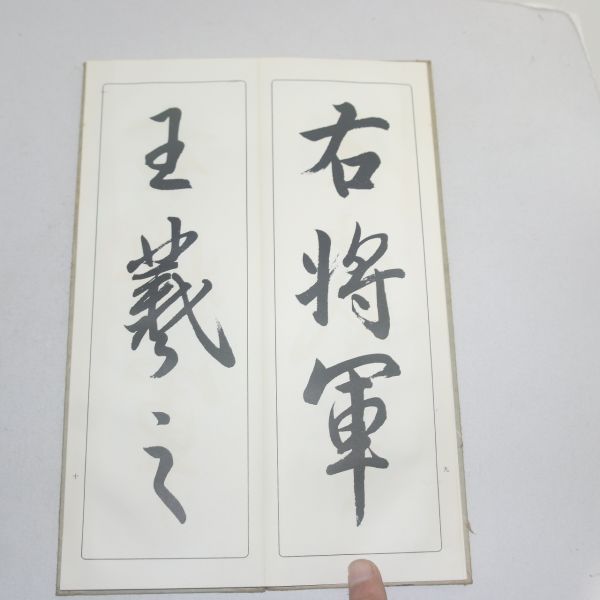 右将軍
九
王羲之
十